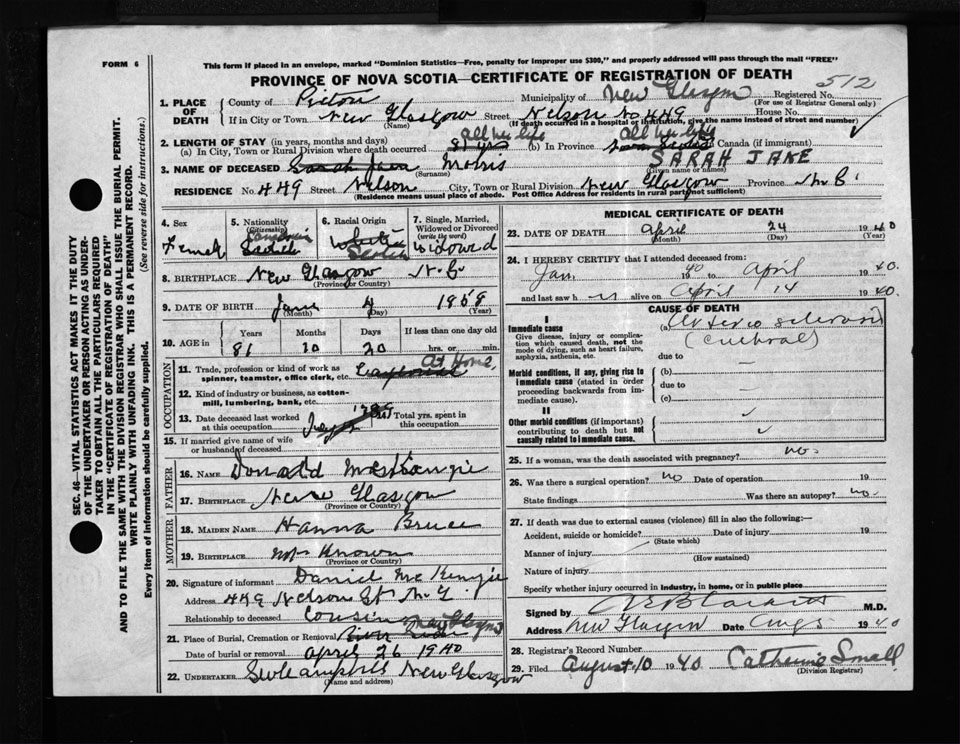 FORM 6
This form if placed in an envelope, marked "Dominion Statistics—Free, penalty for improper use $300," and properly addressed will pass through the mail "FREE"
PROVINCE OF NOVA SCOTIA—CERTIFICATE OF REGISTRATION OF DEATH
512
1. PLACE OF DEATH County of Pictou Municipality of New Glasgow Registered No.
(For use of Registrar General only)
If in City or Town New Glasgow Street Nelson No 449 House No.
(Name) (If death occurred in a hospital or institution, give the name instead of street and number)
all her life all her life
2. LENGTH OF STAY (in years, months and days)
(a) In City, Town or Rural Division where death occurred 81 yrs (b) In Province Canada (if immigrant)
SARAH JANE
3. NAME OF DECEASED Sarah Jane Morris
(Surname) (Given name or names)
RESIDENCE No. 449 Street Nelson City, Town or Rural Division New Glasgow Province
(Residence means usual place of abode. Post Office Address for residents in rural parts not sufficient)
4. Sex 5. Nationality (Citizenship) 6. Racial Origin 7. Single, Married, Widowed or Divorced (write the word)
Female Canadian White Scotch Widowed
8. BIRTHPLACE New Glasgow
(Province or Country)
9. DATE OF BIRTH June 4 1859
(Month) (Day) (Year)
10. AGE in Years Months Days If less than one day old
81 10 20 hrs. or min.
OCCUPATION
At Home
11. Trade, profession or kind of work as spinner, teamster, office clerk, etc.
12. Kind of industry or business, as cotton-mill, lumbering, bank, etc.
13. Date deceased last worked at this occupation Total yrs. spent in this occupation
15. If married give name of wife or husband of deceased
FATHER
16. NAME Donald
17. BIRTHPLACE New Glasgow
(Province or Country)
MOTHER
18. MAIDEN NAME Hanna Bruce
19. BIRTHPLACE Known
(Province or Country)
20. Signature of informant Daniel McKenzie
Address 449 Nelson St N. G.
Relationship to deceased Cousin
New Glasgow
21. Place of Burial, Cremation or Removal River
Date of burial or removal April 26 1940
22. UNDERTAKER New Glasgow
(Name and address)
MEDICAL CERTIFICATE OF DEATH
23. DATE OF DEATH April 24 1940
(Month) (Day) (Year)
24. I HEREBY CERTIFY that I attended deceased from:
Jan 1940 to April 1940.
and last saw h er alive on April 14 1940.
CAUSE OF DEATH
I
Immediate cause
Give disease, injury or complication which caused death, not the mode of dying, such as heart failure, asphyxia, asthenia, etc.
(a) Arterio sclerosis
(cerebral)
due to
Morbid conditions, if any, giving rise to immediate cause (stated in order proceeding backwards from immediate cause).
(b)
due to
(c)
II
Other morbid conditions (if important) contributing to death but not causally related to immediate cause.
25. If a woman, was the death associated with pregnancy? no.
26. Was there a surgical operation? no Date of operation 19
State findings Was there an autopsy? no.
27. If death was due to external causes (violence) fill in also the following:—
Accident, suicide or homicide? Date of injury 19
(State which)
Manner of injury
(How sustained)
Nature of injury
Specify whether injury occurred in industry, in home, or in public place
Signed by M.D.
Address New Glasgow Date Aug 5 1940
28. Registrar's Record Number
29. Filed August 10 1940 Catherine Small
(Division Registrar)
SEC. 46—VITAL STATISTICS ACT MAKES IT THE DUTY
OF THE UNDERTAKER OR PERSON ACTING AS UNDERTAKER TO OBTAIN ALL THE PARTICULARS REQUIRED
IN THE "CERTIFICATE OF REGISTRATION OF DEATH"
AND TO FILE THE SAME WITH THE DIVISION REGISTRAR WHO SHALL ISSUE THE BURIAL PERMIT.
WRITE PLAINLY WITH UNFADING INK. THIS IS A PERMANENT RECORD.
Every item of Information should be carefully supplied. (See reverse side for instructions.)